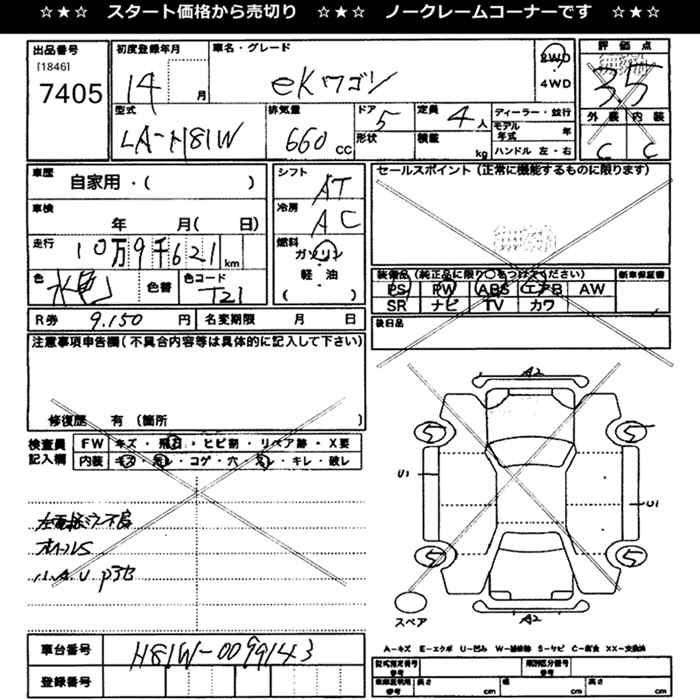 ☆★☆ スタート価格から売切り ☆★☆ ノークレームコーナーです ☆★☆
出品番号
[1846]
7405
初度登録年月
14 月
車名・グレード
eKワゴン
2WD
4WD
評価点
3.5
外装 内装
C C
型式
LA-H81W
排気量
660 CC
ドア 5
形状
定員 4人
積載 kg
ディーラー・並行
モデル年式 年
ハンドル 左・右
車歴
自家用・( )
シフト AT
冷房 AC
セールスポイント (正常に機能するものに限ります)
車検 年 月( 日)
走行 10万9千621 km
燃料 ガソリン
軽・油
( )
色 水色 色替
色コード T21
装備品 (純正品に限り○をつけてください) 新車保証書
PS PW ABS エアB AW
SR ナビ TV カワ
R券 9.150 円 名変期限 月 日
後日品
注意事項申告欄 (不具合内容等は具体的に記入して下さい)
修復歴 有 (箇所 )
検査員記入欄
FW キズ・飛石・ヒビ割・リペア跡・X要
内装 キズ・汚レ・コゲ・穴・スレ・キレ・破レ
A2
5 5
U1 U1
5 5
スペア A2
A-キズ E-エクボ U-凹み W-補修跡 S-サビ C-腐食 XX-交換済
車台番号 H81W-0099143
登録番号
型式指定番号 参考
類別区分番号 参考
車庫証明用 参考 長さ cm 幅 cm 高さ cm